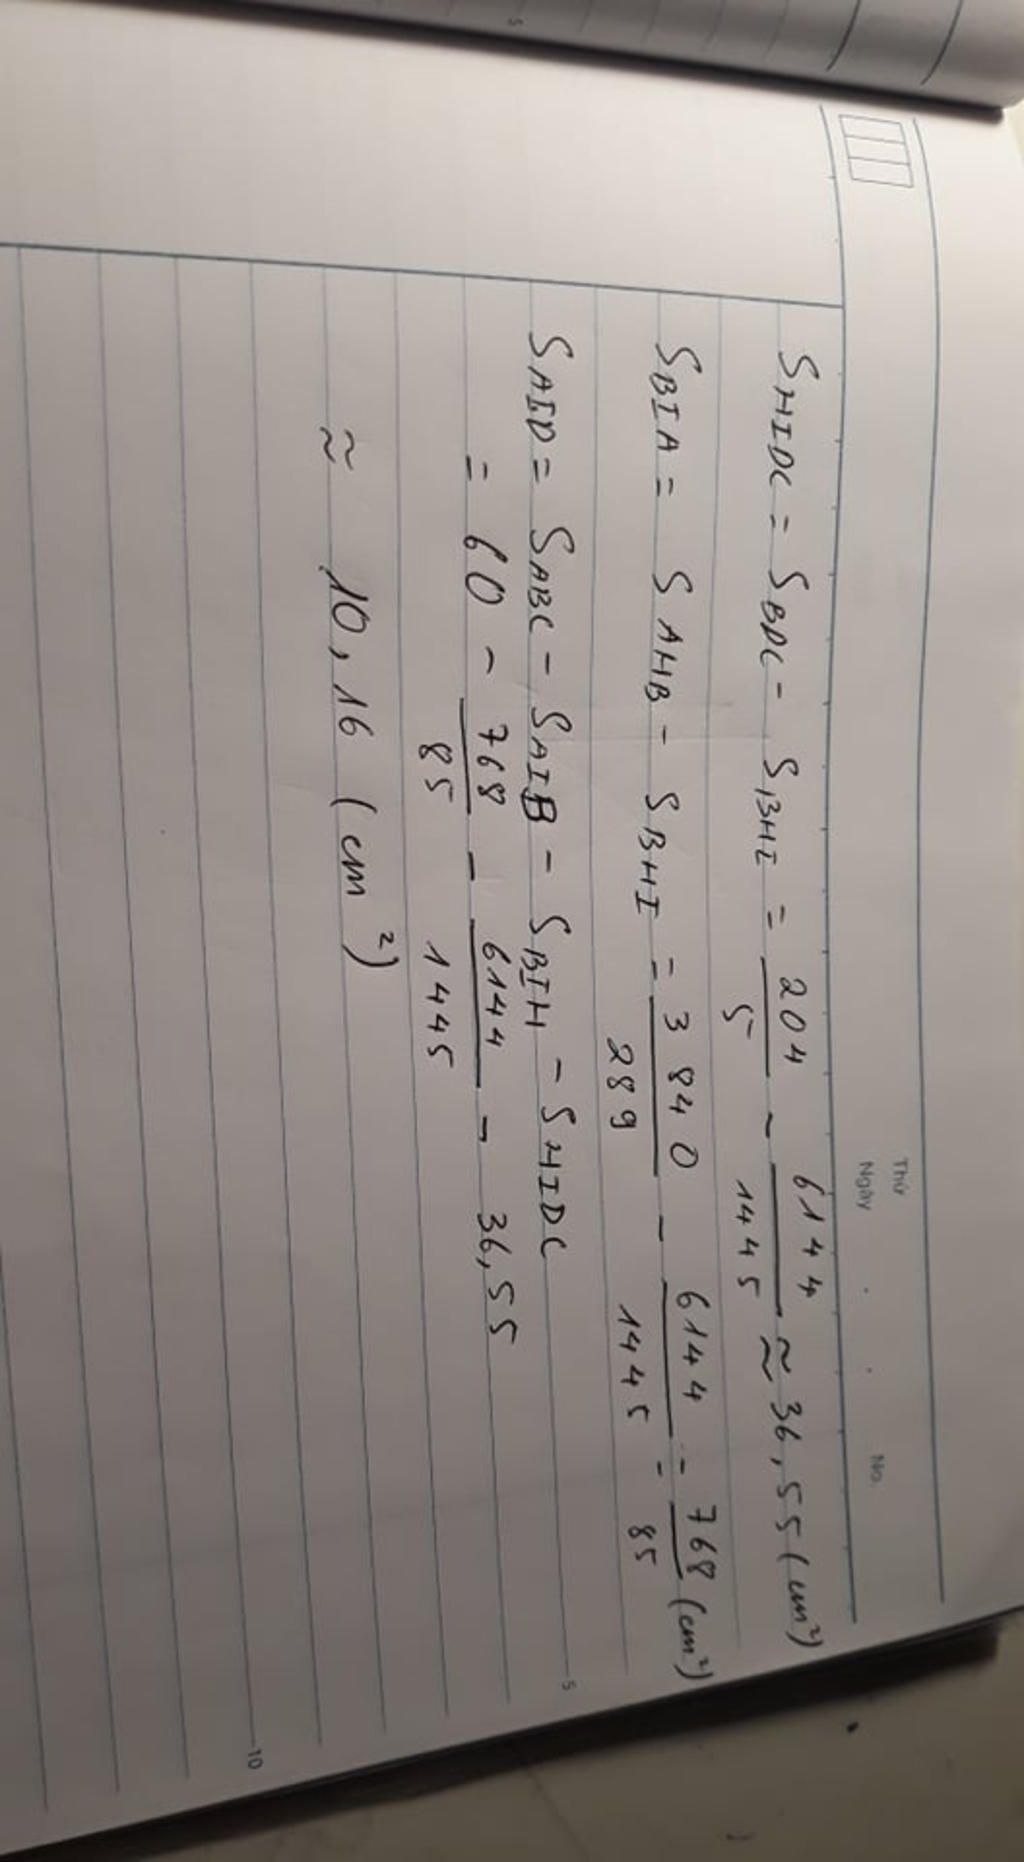 Thứ
Ngày . . No.
S HIDC = S BDC - S BHI = 204/5 - 6144/1445 ≈ 36,55 (cm²)
S BIA = S AHB - S BHI = 3840/289 - 6144/1445 = 768/85 (cm²)
S AID = S ABC - S AIB - S BIH - S HIDC
= 60 - 768/85 - 6144/1445 - 36,55
≈ 10,16 (cm²)
5
10
5